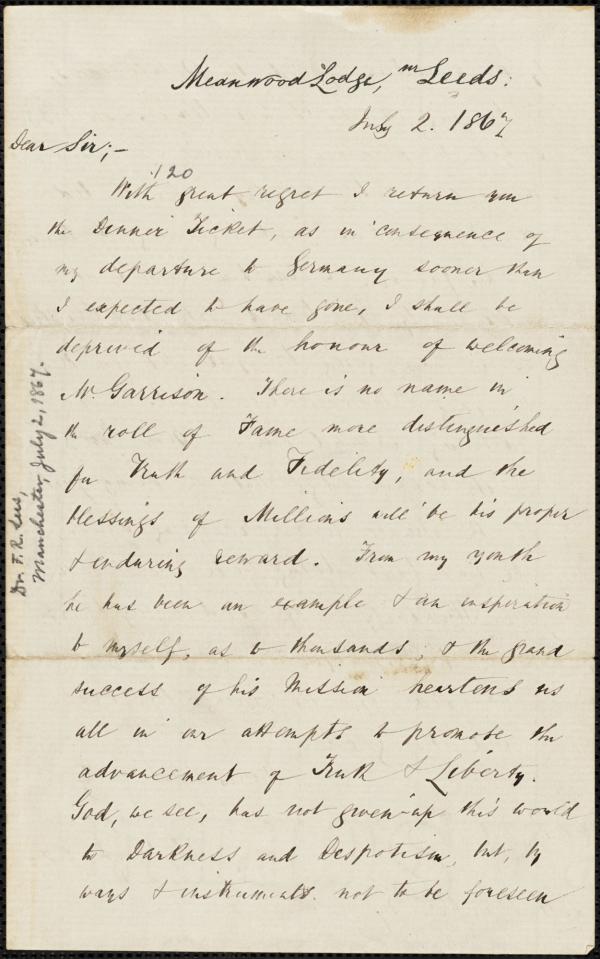 Meanwood Lodge, nr Leeds:
July 2. 1867
Dear Sir;—
120
With great regret I return you
the Dinner Ticket, as in consequence of
my departure to Germany sooner than
I expected to have gone, I shall be
deprived of the honour of welcoming
Mr. Garrison. There is no name in
the roll of Fame more distinguished
for Truth and Fidelity, and the
blessings of Millions will be his proper
& enduring reward. From my youth
he has been an example & an inspiration
to myself, as to thousands; & the grand
success of his Mission heartens us
all in our attempts to promote the
advancement of Truth & Liberty.
God, we see, has not given-up this world
to Darkness and Despotism, but, by
ways & instruments not to be foreseen
Dr. F. R. Lees,
Manchester, July 2, 1867.